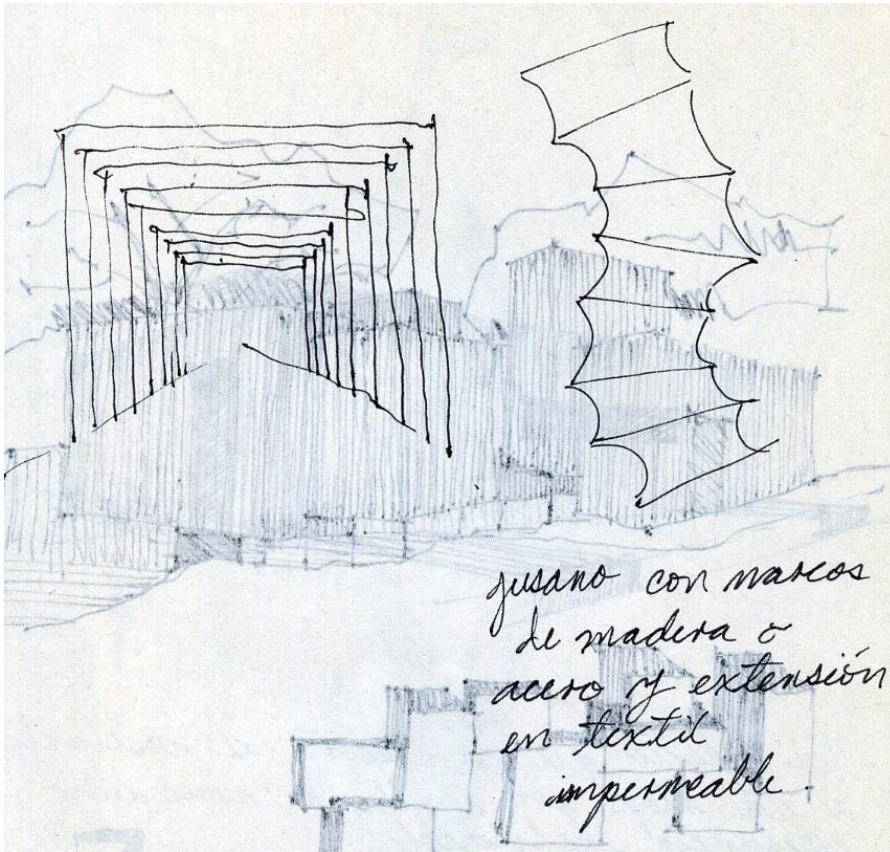 gusano con marcos
de madera o
acero y extensión
en textil
impermeable.